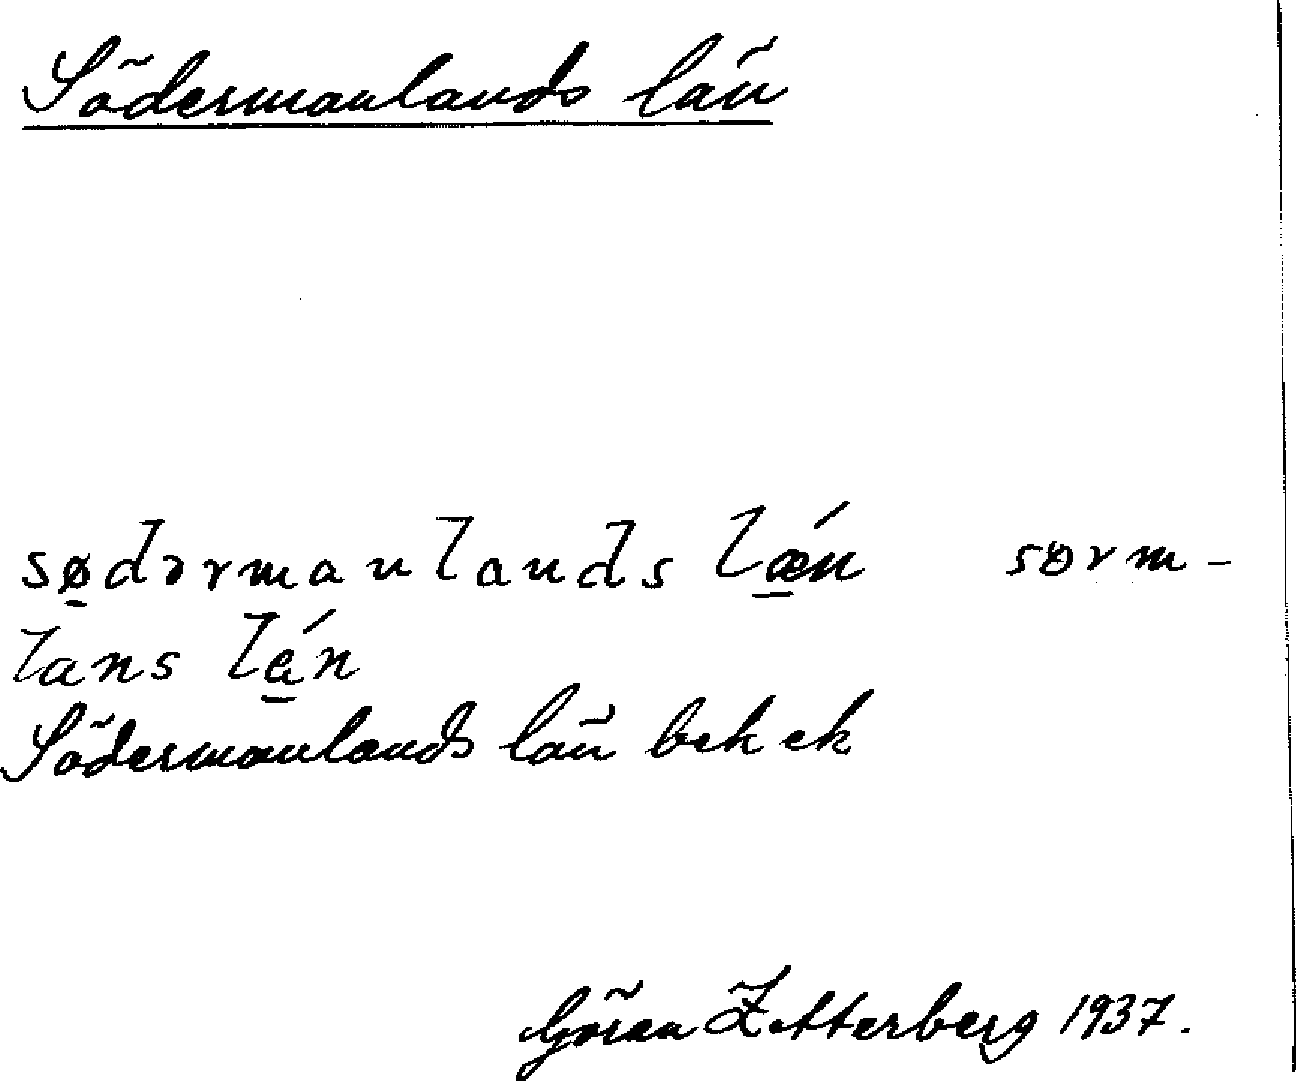 Södermanlands län
sødərmanlands lǽn sørm-
lans lén
Södermanlands län bek ek
Gören Zetterberg 1937.